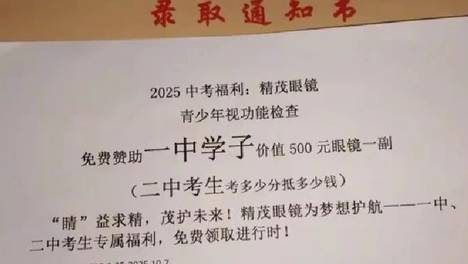 录取通知书
2025 中考福利：精茂眼镜
青少年视功能检查
免费赞助一中学子价值 500 元眼镜一副
（二中考生考多少分抵多少钱）
“睛”益求精，茂护未来！精茂眼镜为梦想护航——一中、
二中考生专属福利，免费领取进行时！